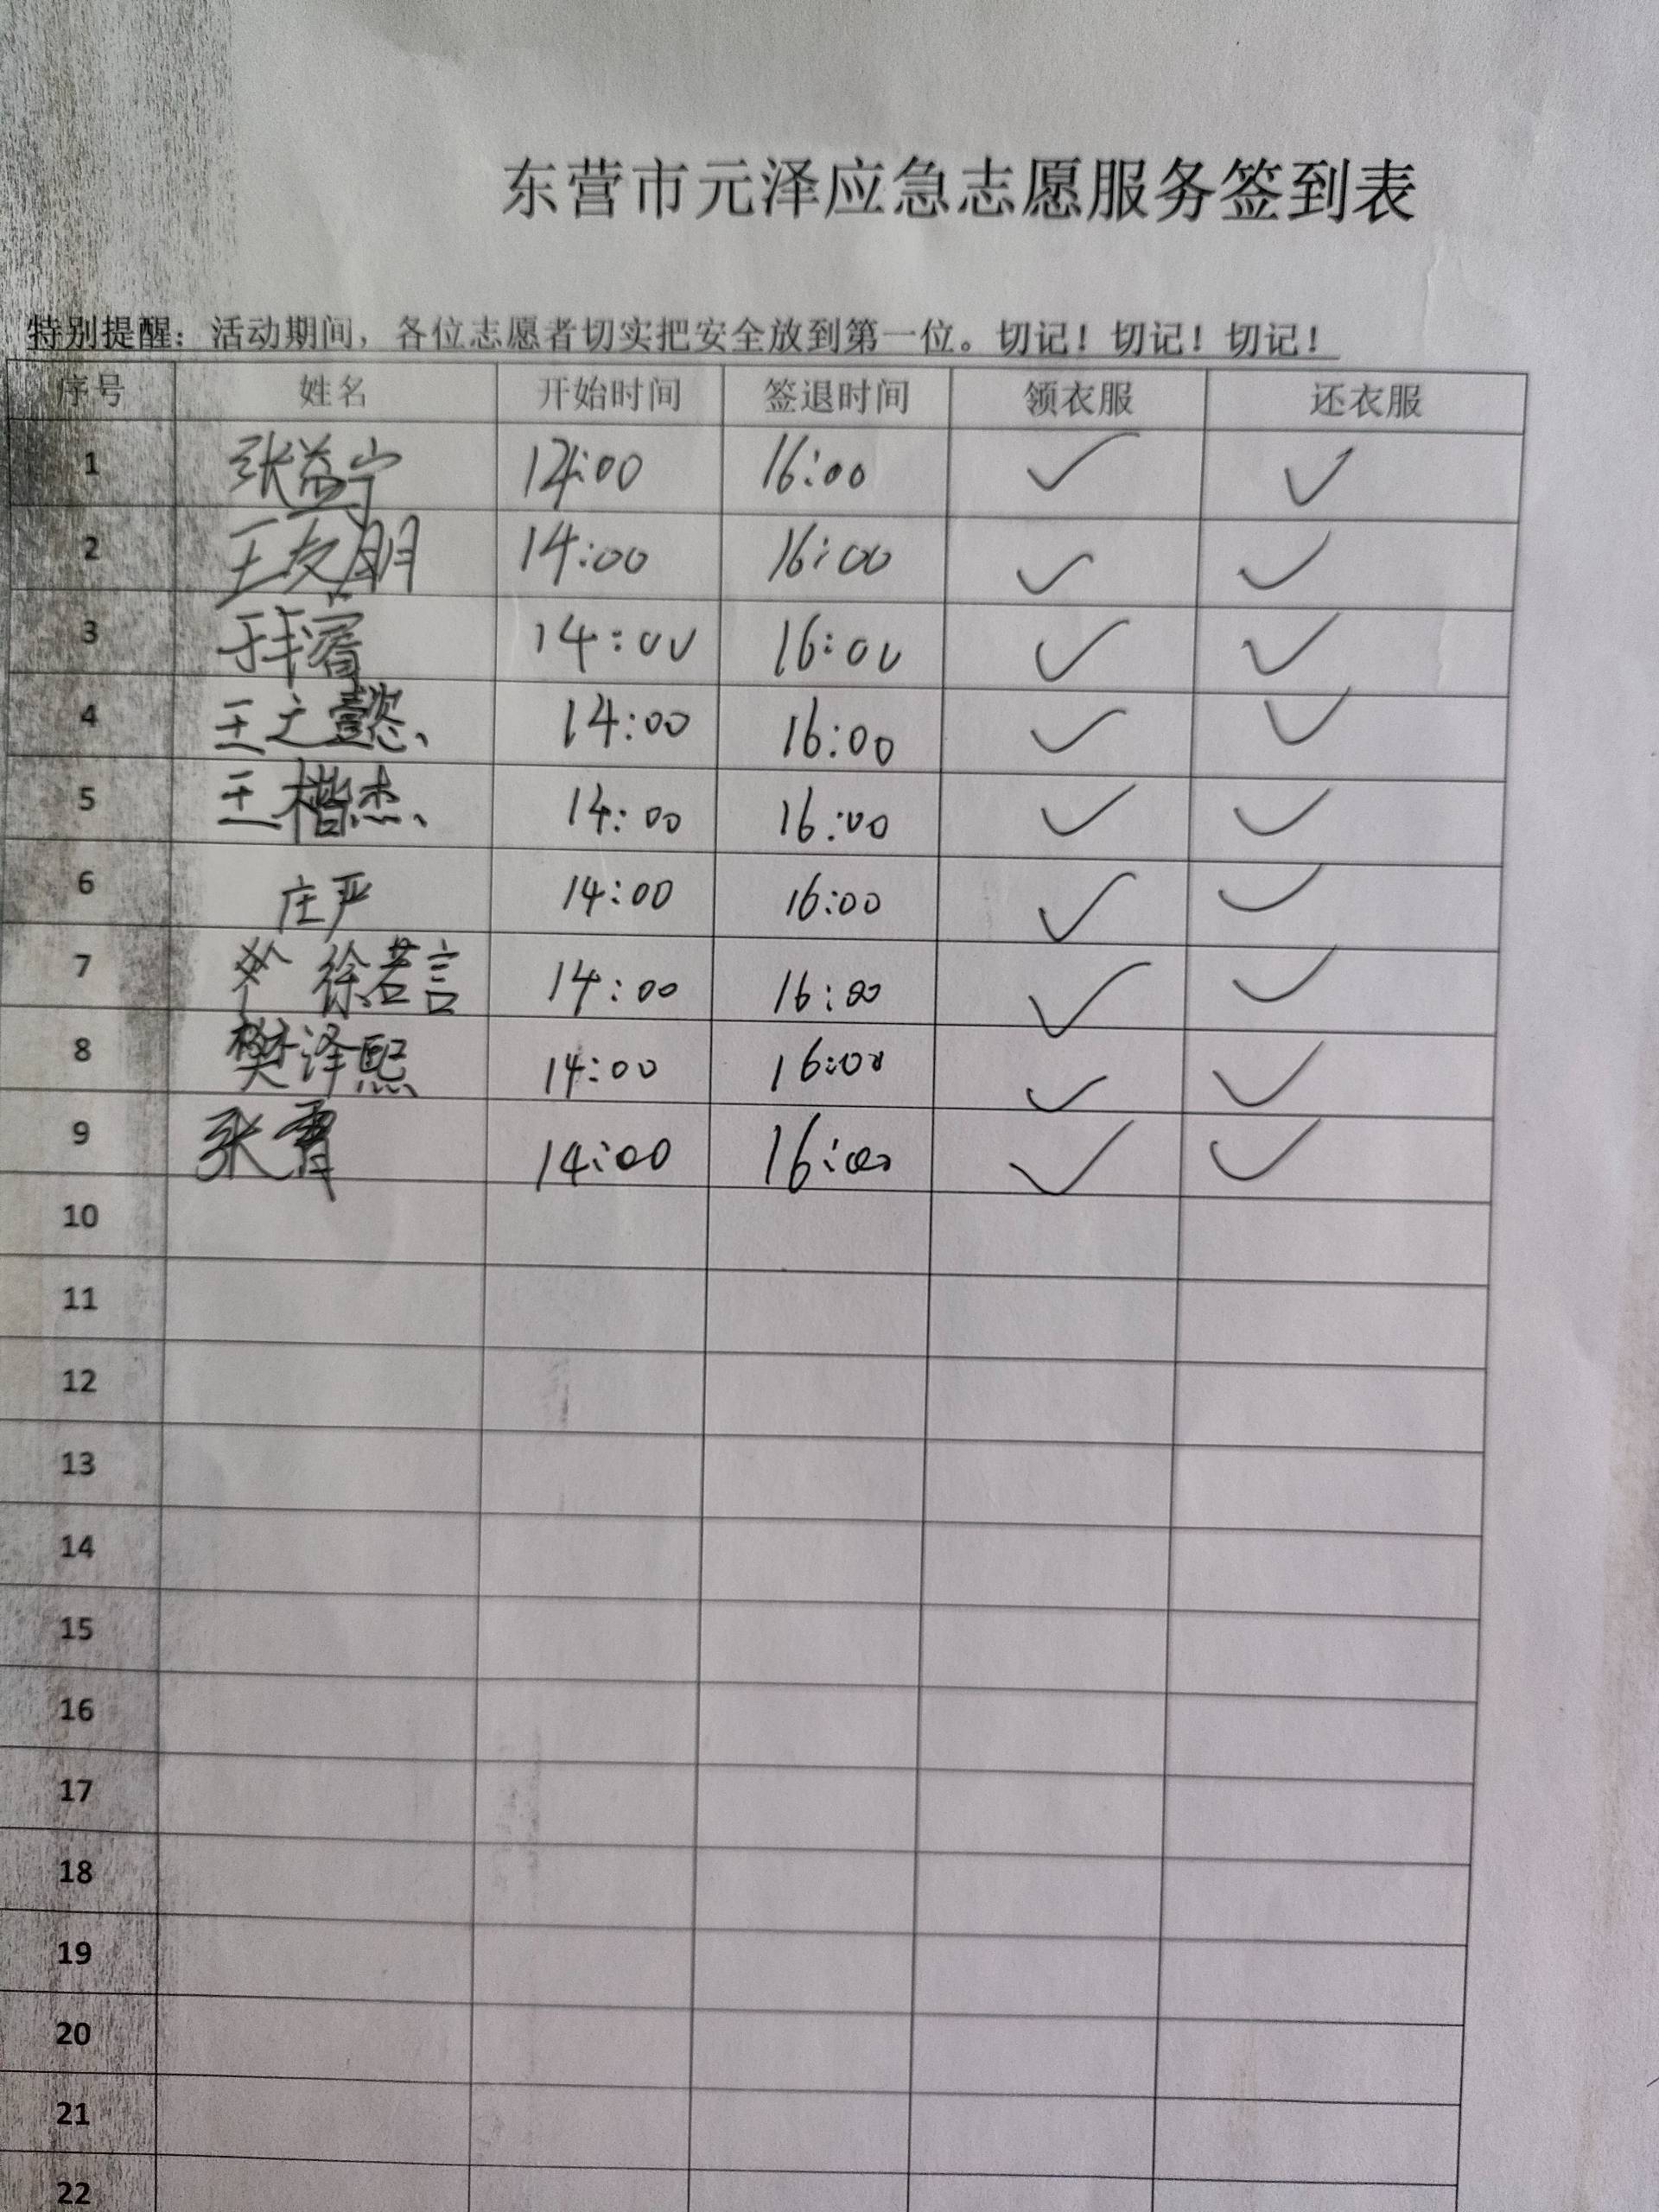 东营市元泽应急志愿服务签到表
特别提醒：活动期间，各位志愿者切实把安全放到第一位。切记！切记！切记！
序号 姓名 开始时间 签退时间 领衣服 还衣服
1 张益宁 14:00 16:00 ✓ ✓
2 王友朋 14:00 16:00 ✓ ✓
3 14:00 16:00 ✓ ✓
4 王之懿 14:00 16:00 ✓ ✓
5 王楷杰 14:00 16:00 ✓ ✓
6 庄严 14:00 16:00 ✓ ✓
7 徐若言 14:00 16:00 ✓ ✓
8 樊泽熙 14:00 16:00 ✓ ✓
9 张霄 14:00 16:00 ✓ ✓
10
11
12
13
14
15
16
17
18
19
20
21
22